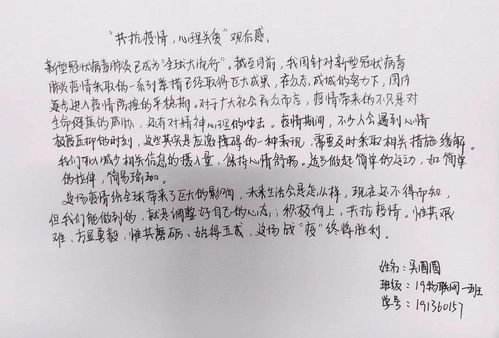 “共抗疫情，心理关爱”观后感。
新型冠状病毒肺炎已成为“全球大流行”。截至目前，我国针对新型冠状病毒
肺炎疫情采取的一系列举措已经取得巨大成果，在众志成城的努力下，国内
逐步进入疫情防控的平稳期。对于广大社会民众而言，疫情带来的不只是对
生命健康的威胁，还有对精神心理的冲击。疫情期间，不少人会遇到心情
极度压抑的时刻，这些其实是应激障碍的一种表现，需要及时采取相关措施缓解。
我们可以减少相关信息的摄入量，保持心情舒畅。适当做些简单的运动，如简单
的拉伸，简易瑜伽。
这场疫情给全球带来了巨大的影响，未来生活会是怎么样，现在还不得而知，
但我们能做到的，就是调整好自己的心态；积极向上，共抗疫情。惟其艰
难，方显勇毅，惟其磨砺，始得玉成，这场战“疫”终将胜利。
姓名：吴圆圆
班级：19物联网一班
学号：191360157